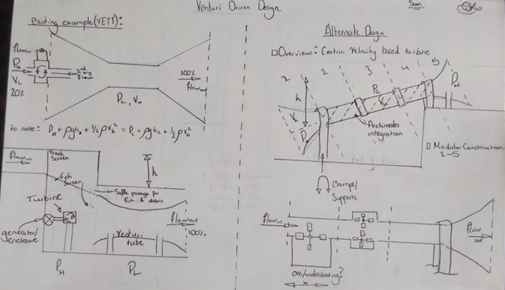 Venturi Driven Design
existing example (VETT):
flow in
P_H
V_H
20%
P_L, V_L
100%
flow out
to note: P_H + ρgh_1 + ½ρV_H² = P_L + ρgh_2 + ½ρV_L²
flow in
Trash
Screen
Fish
Screen
Safe passage for
Fish & debris
h
Turbine
generator/
Venturi
tube
flow out
100%
P_H
P_L
Alternate Design
Overview: Centric Velocity based turbine
1
2
3
4
5
h
P_L
Archimedes
integration
Modular Construction
1-5
Clamps/
Supports
flow in
flow
out